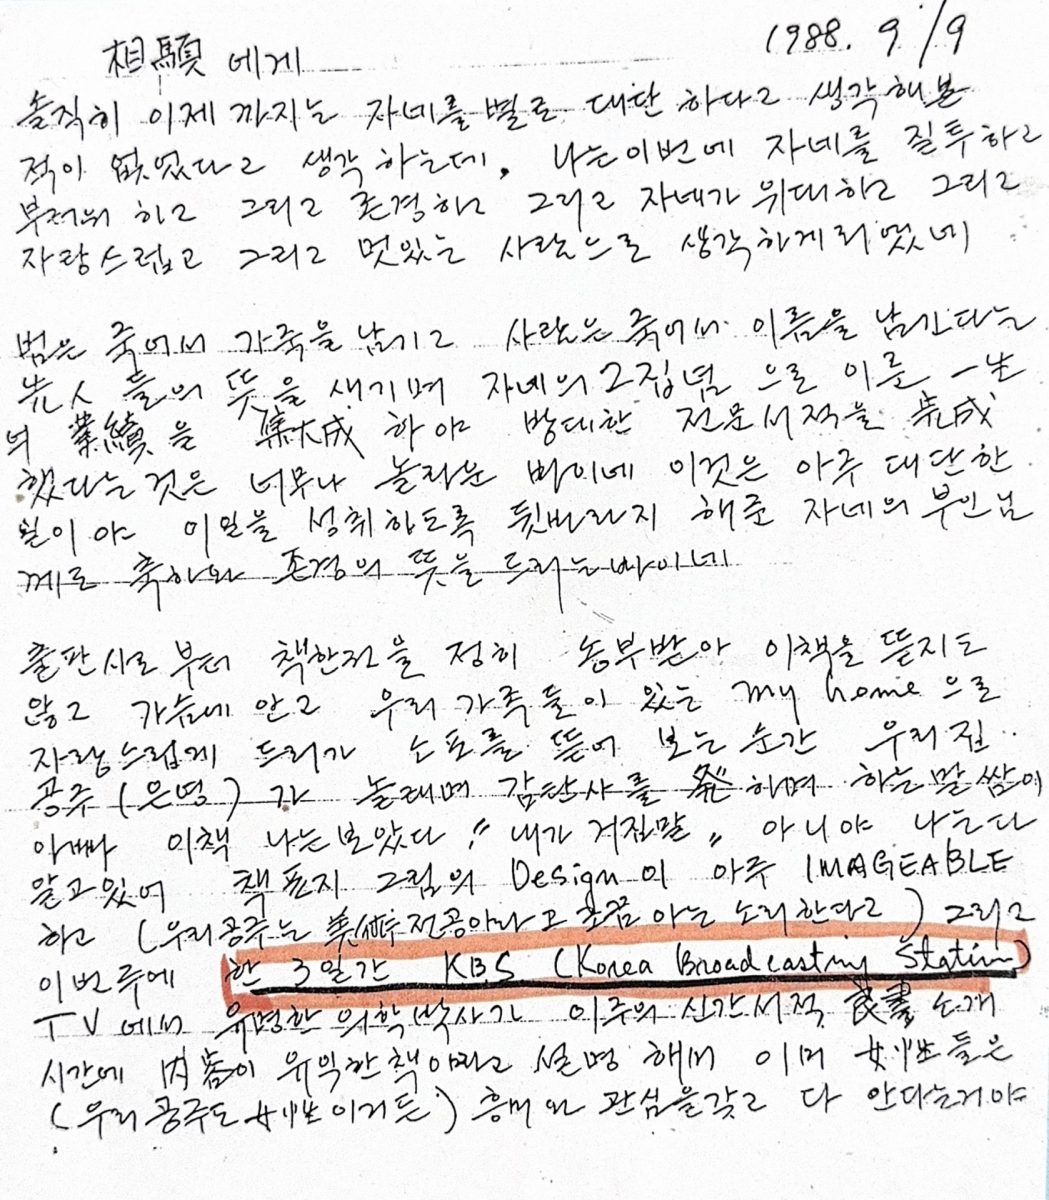 1988. 9/9
相顯 에게
솔직히 이제 까지는 자네를 별로 대단 하다고 생각해본
적이 없었다고 생각 하는데, 나는 이번에 자네를 질투하고
부러워 하고 그리고 존경하고 그리고 자네가 위대하고 그리고
자랑스럽고 그리고 멋있는 사람으로 생각하게 되였네
범은 죽어서 가죽을 남기고 사람은 죽어서 이름을 남긴다는
先人 들의 뜻을 새기며 자네의 그집념 으로 이룬 一生
의 業績을 集大成 하야 방대한 전문서적을 完成
했다는것은 너무나 놀라운 바이네 이것은 아주 대단한
일이야 이일을 성취하도록 뒷바라지 해준 자네의 부인님
께로 축하와 존경의 뜻을 드리는바이네
출판사로 부터 책한권을 정히 송부받아 이책을 뜯지도
않고 가슴에 안고 우리 가족들이 있는 my home 으로
자랑스럽게 드러가 소포를 뜯어 보는 순간 우리집
공주 (은영) 가 놀래며 감탄사를 発하며 하는말쌈이
아빠 이책 나는보았다 〃내가 거짓말〃 아니야 나는다
알고있어 책표지 그림의 Design이 아주 IMAGEABLE
하고 (우리공주는 美術전공이라고 조끔 아는 소리한다고) 그리고
이번주에 한 3일간 KBS (Korea Broadcasting Station)
TV에서 유명한 의학박사가 이주의 신간서적 良書소개
시간에 內容이 유익한책이라고 설명 해서 이미 女性들은
(우리공주도 女性이거든) 흥미와 관심을갖고 다 안다는거야